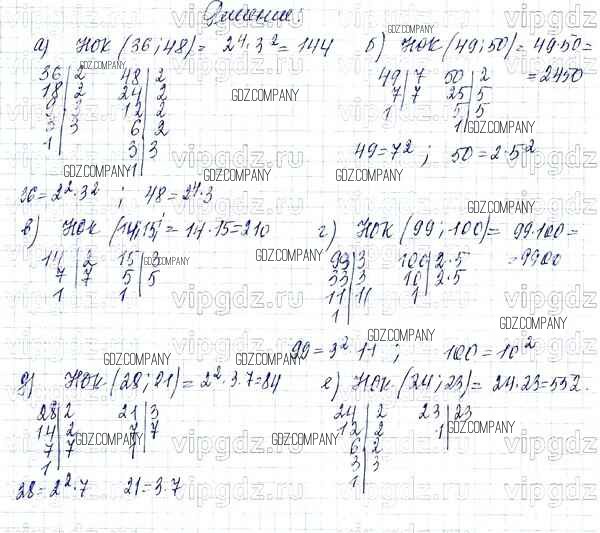 Решение:
а) НОК (36; 48) = 2⁴·3² = 144
36 | 2   48 | 2
18 | 2   24 | 2
9 | 3   12 | 2
3 | 3   6 | 2
1 |   3 | 3
1 |
36 = 2²·3² ; 48 = 2⁴·3
б) НОК (49; 50) = 49·50 =
= 2450
49 | 7   50 | 2
7 | 7   25 | 5
1 |   5 | 5
1 |
49 = 7² ; 50 = 2·5²
в) НОК (14; 15) = 14·15 = 210
14 | 2   15 | 3
7 | 7   5 | 5
1 |   1 |
г) НОК (99; 100) = 99·100 =
= 9900
99 | 3   100 | 2·5
33 | 3   10 | 2·5
11 | 11   1 |
1 |
99 = 3²·11 ; 100 = 10²
д) НОК (28; 21) = 2²·3·7 = 84
28 | 2   21 | 3
14 | 2   7 | 7
7 | 7   1 |
1 |
28 = 2²·7   21 = 3·7
е) НОК (24; 23) = 24·23 = 552.
24 | 2   23 | 23
12 | 2   1 |
6 | 2
3 | 3
1 |
GDZ.COMPANY
vipgdz.ru